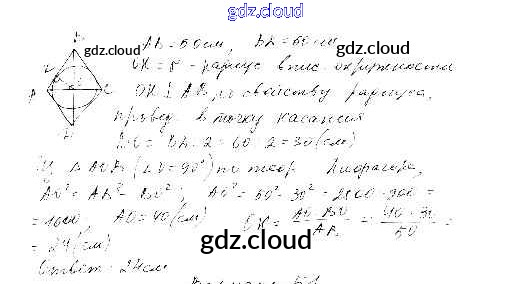 gdz.cloud
AB = 50 см, BД = 60 см
gdz.cloud
gdz.cloud
OK = r - радиус впис. окружности
OK ⊥ AB, по свойству радиуса,
провед. в точку касания
BO = BД : 2 = 60 : 2 = 30 (см)
ΔAOB (∠O = 90°) по теор. Пифагора,
AO² = AB² - BO²; AO² = 50² - 30² = 2500 - 900 =
= 1600 AO = 40 (см) OK = AO·BO / AB = 40·30 / 50 =
= 24 (см)
gdz.cloud
Ответ: 24 см